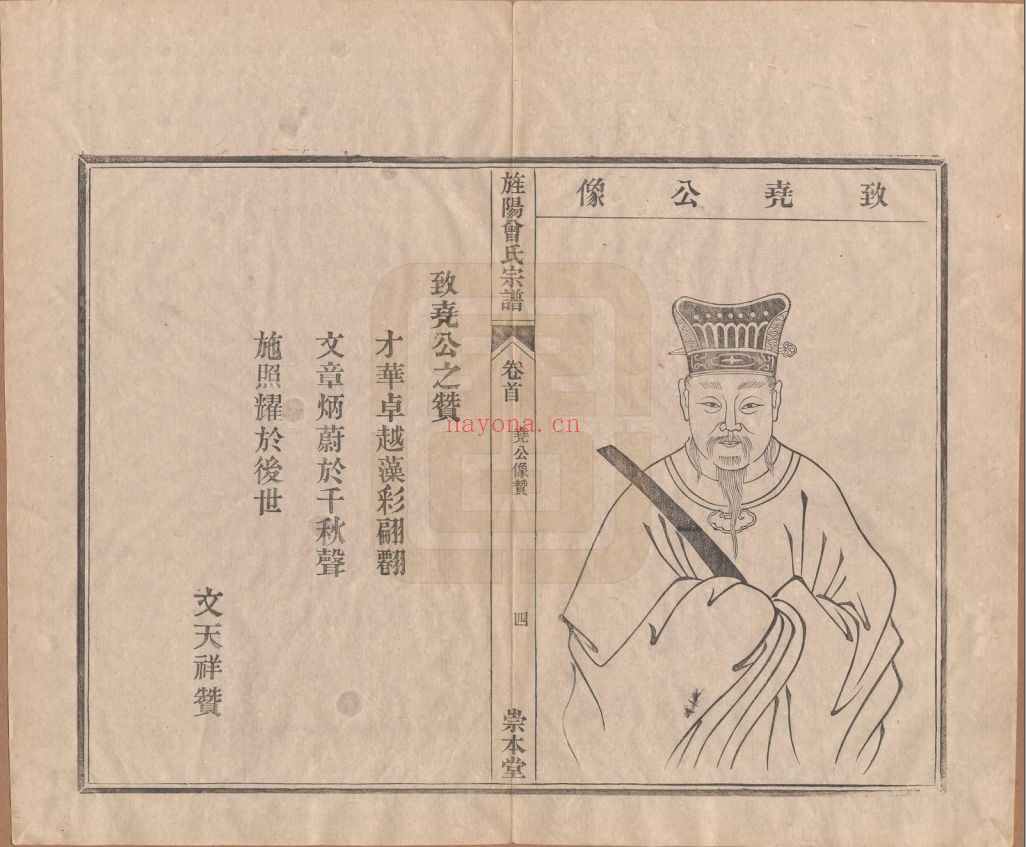 致堯公像
旌陽曾氏宗譜
卷首
堯公像贊
四
崇本堂
致堯公之贊
才華卓越藻彩翩翻
文章炳蔚於千秋聲
施照耀於後世
文天祥贊
nayona.cn